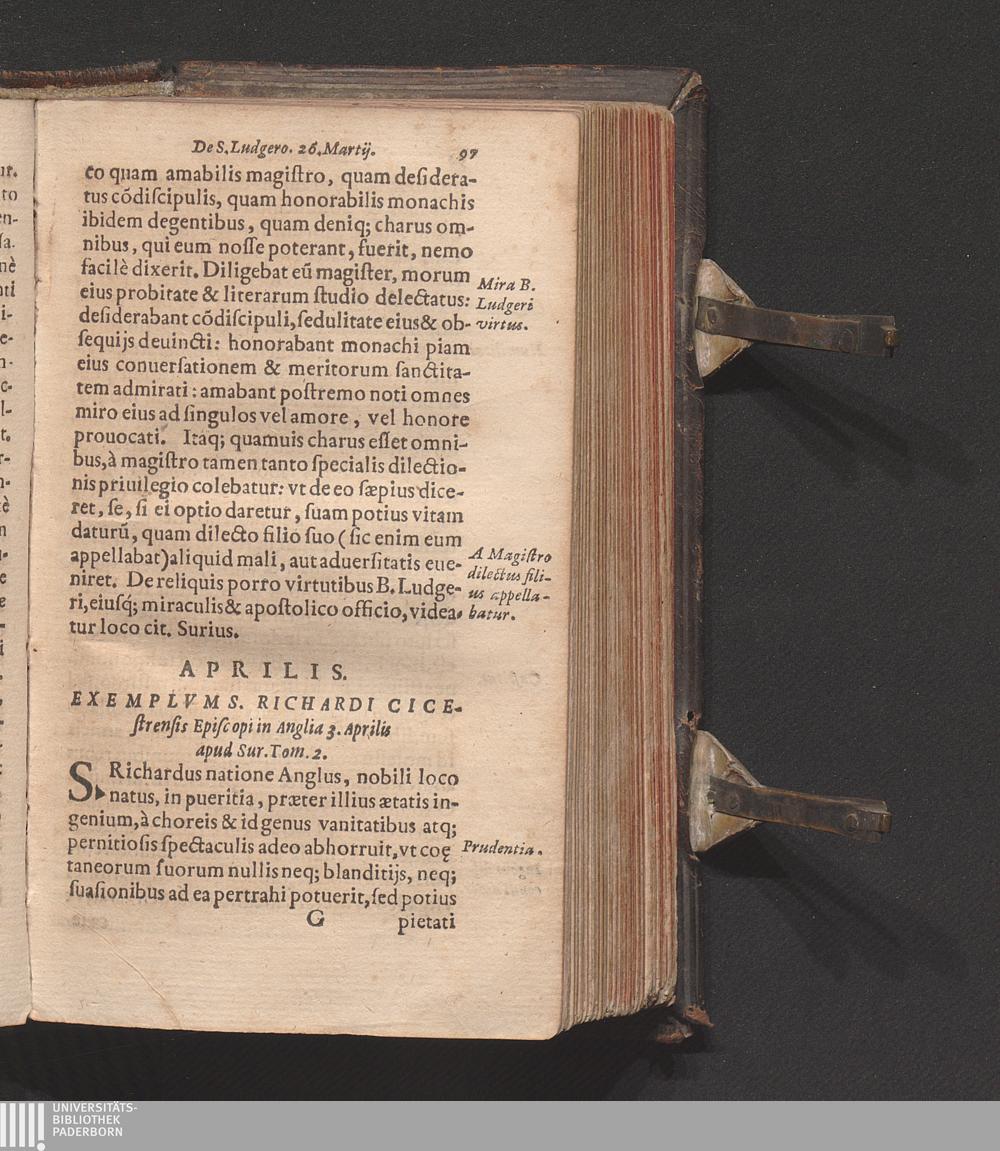 De S. Ludgero. 26. Martij. 97
eo quam amabilis magiſtro, quam deſidera-
tus cõdiſcipulis, quam honorabilis monachis
ibidem degentibus, quam deniq; charus om-
nibus, qui eum noſſe poterant, fuerit, nemo
facilè dixerit. Diligebat eũ magiſter, morum
eius probitate & literarum ſtudio delectatus:
deſiderabant cõdiſcipuli, ſedulitate eius & ob-
ſequijs deuincti: honorabant monachi piam
eius conuerſationem & meritorum ſanctita-
tem admirati: amabant poſtremo noti omnes
miro eius ad ſingulos vel amore, vel honore
prouocati. Itaq; quamuis charus eſſet omni-
bus, à magiſtro tamen tanto ſpecialis dilectio-
nis priuilegio colebatur: vt de eo ſæpius dice-
ret, ſe, ſi ei optio daretur, ſuam potius vitam
daturũ, quam dilecto filio ſuo (ſic enim eum
appellabat) aliquid mali, aut aduerſitatis eue-
niret. De reliquis porro virtutibus B. Ludge-
ri, eiuſq́; miraculis & apoſtolico officio, videa-
tur loco cit. Surius.
Mira B.
Ludgeri
virtus.
A Magiſtro
dilectus fili-
us appella-
batur.
APRILIS.
EXEMPLVM S. RICHARDI CICE-
ſtrenſis Epiſcopi in Anglia 3. Aprilis
apud Sur. Tom. 2.
S. Richardus natione Anglus, nobili loco
natus, in pueritia, præter illius ætatis in-
genium, à choreis & id genus vanitatibus atq;
pernitioſis ſpectaculis adeo abhorruit, vt coę
taneorum ſuorum nullis neq; blanditijs, neq;
ſuaſionibus ad ea pertrahi potuerit, ſed potius
Prudentia.
G pietati
UNIVERSITÄTS-
BIBLIOTHEK
PADERBORN